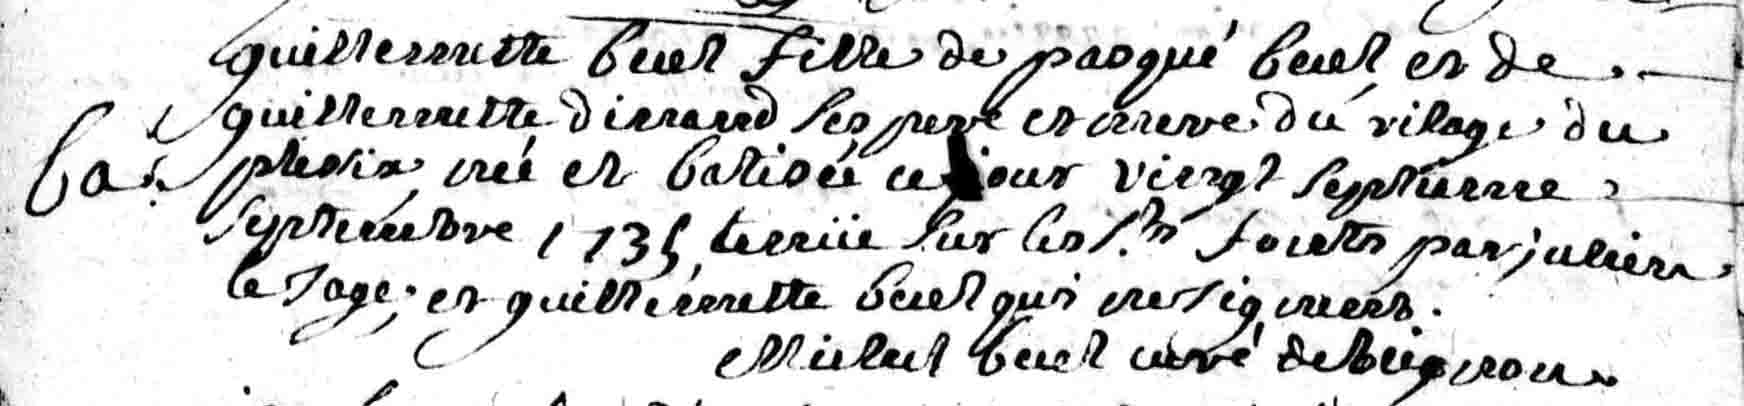 guillemette buel fille de pasqué buel et de
guillemette dinard ses pere et mere du vilage du
ba. plesix née et batisée ce jour vingt septieme
septembre 1735 tenüe sur les fonts par julien
le sage, et guillemette buel qui ne signent.
Michel buel curé de bignon